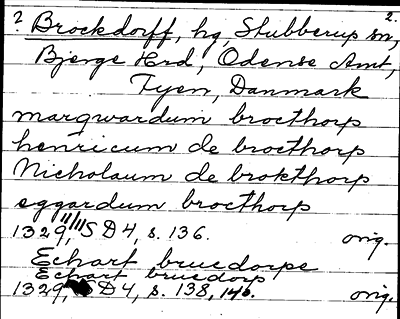 ? Brockdorff, hg, Stubberup sn, 2.
Bjerge Hrd, Odense Amt,
Fyen, Danmark
marqwardum brocthorp
henricum de brocthorp
Nicholaum de brokthorp
eggardum brocthorp
1329, 11/11 SD4, s. 136. orig.
Echart bruedorpe
Echart bruedorp
1329, SD4, s. 138, 140. orig.